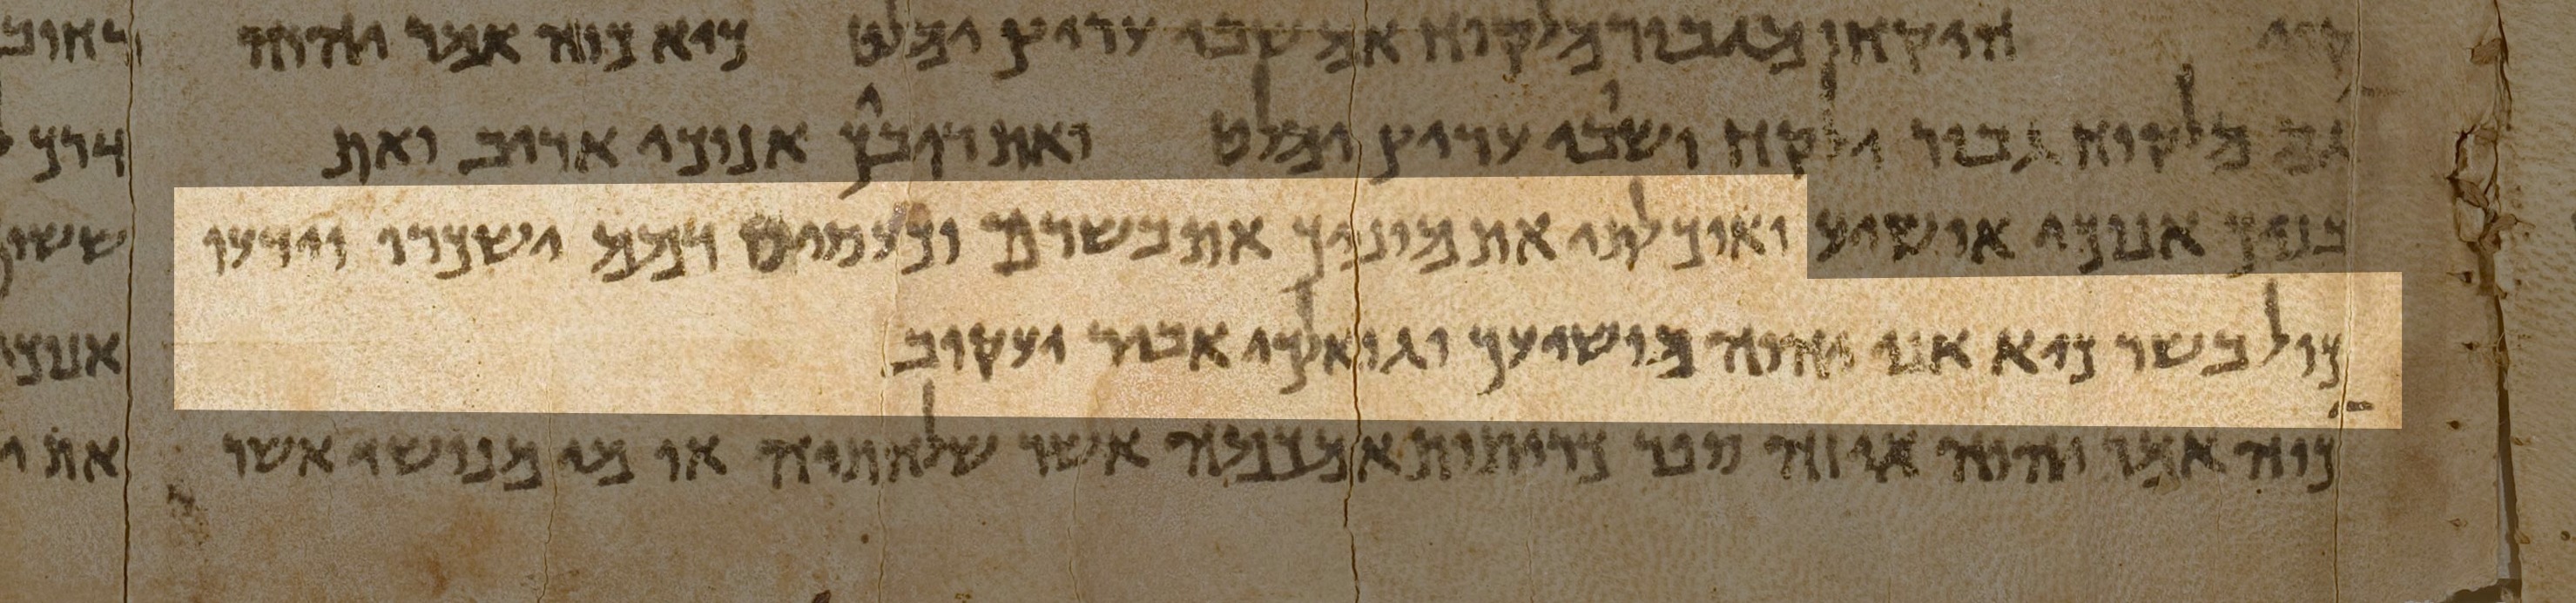 קוי היקחו מגבור מלקוח אם שבי עריץ ימלט כיא כוה אמר יהוה
גם מלקוח גבור ילקח ושבי עריץ ימלט ואת ריבך אנוכי אריב ואת
בניך אנוכי אושיע ואוכלתי את מוניך את בשרם וכעסיס דמם ישכרו וידעו
כול בשר כיא אני יהוה מושיעך וגואלך אביר יעקוב
כוה אמר יהוה אי זה ספר כריתות אמכמה אשר שלחתיה או מי מנושי אשר